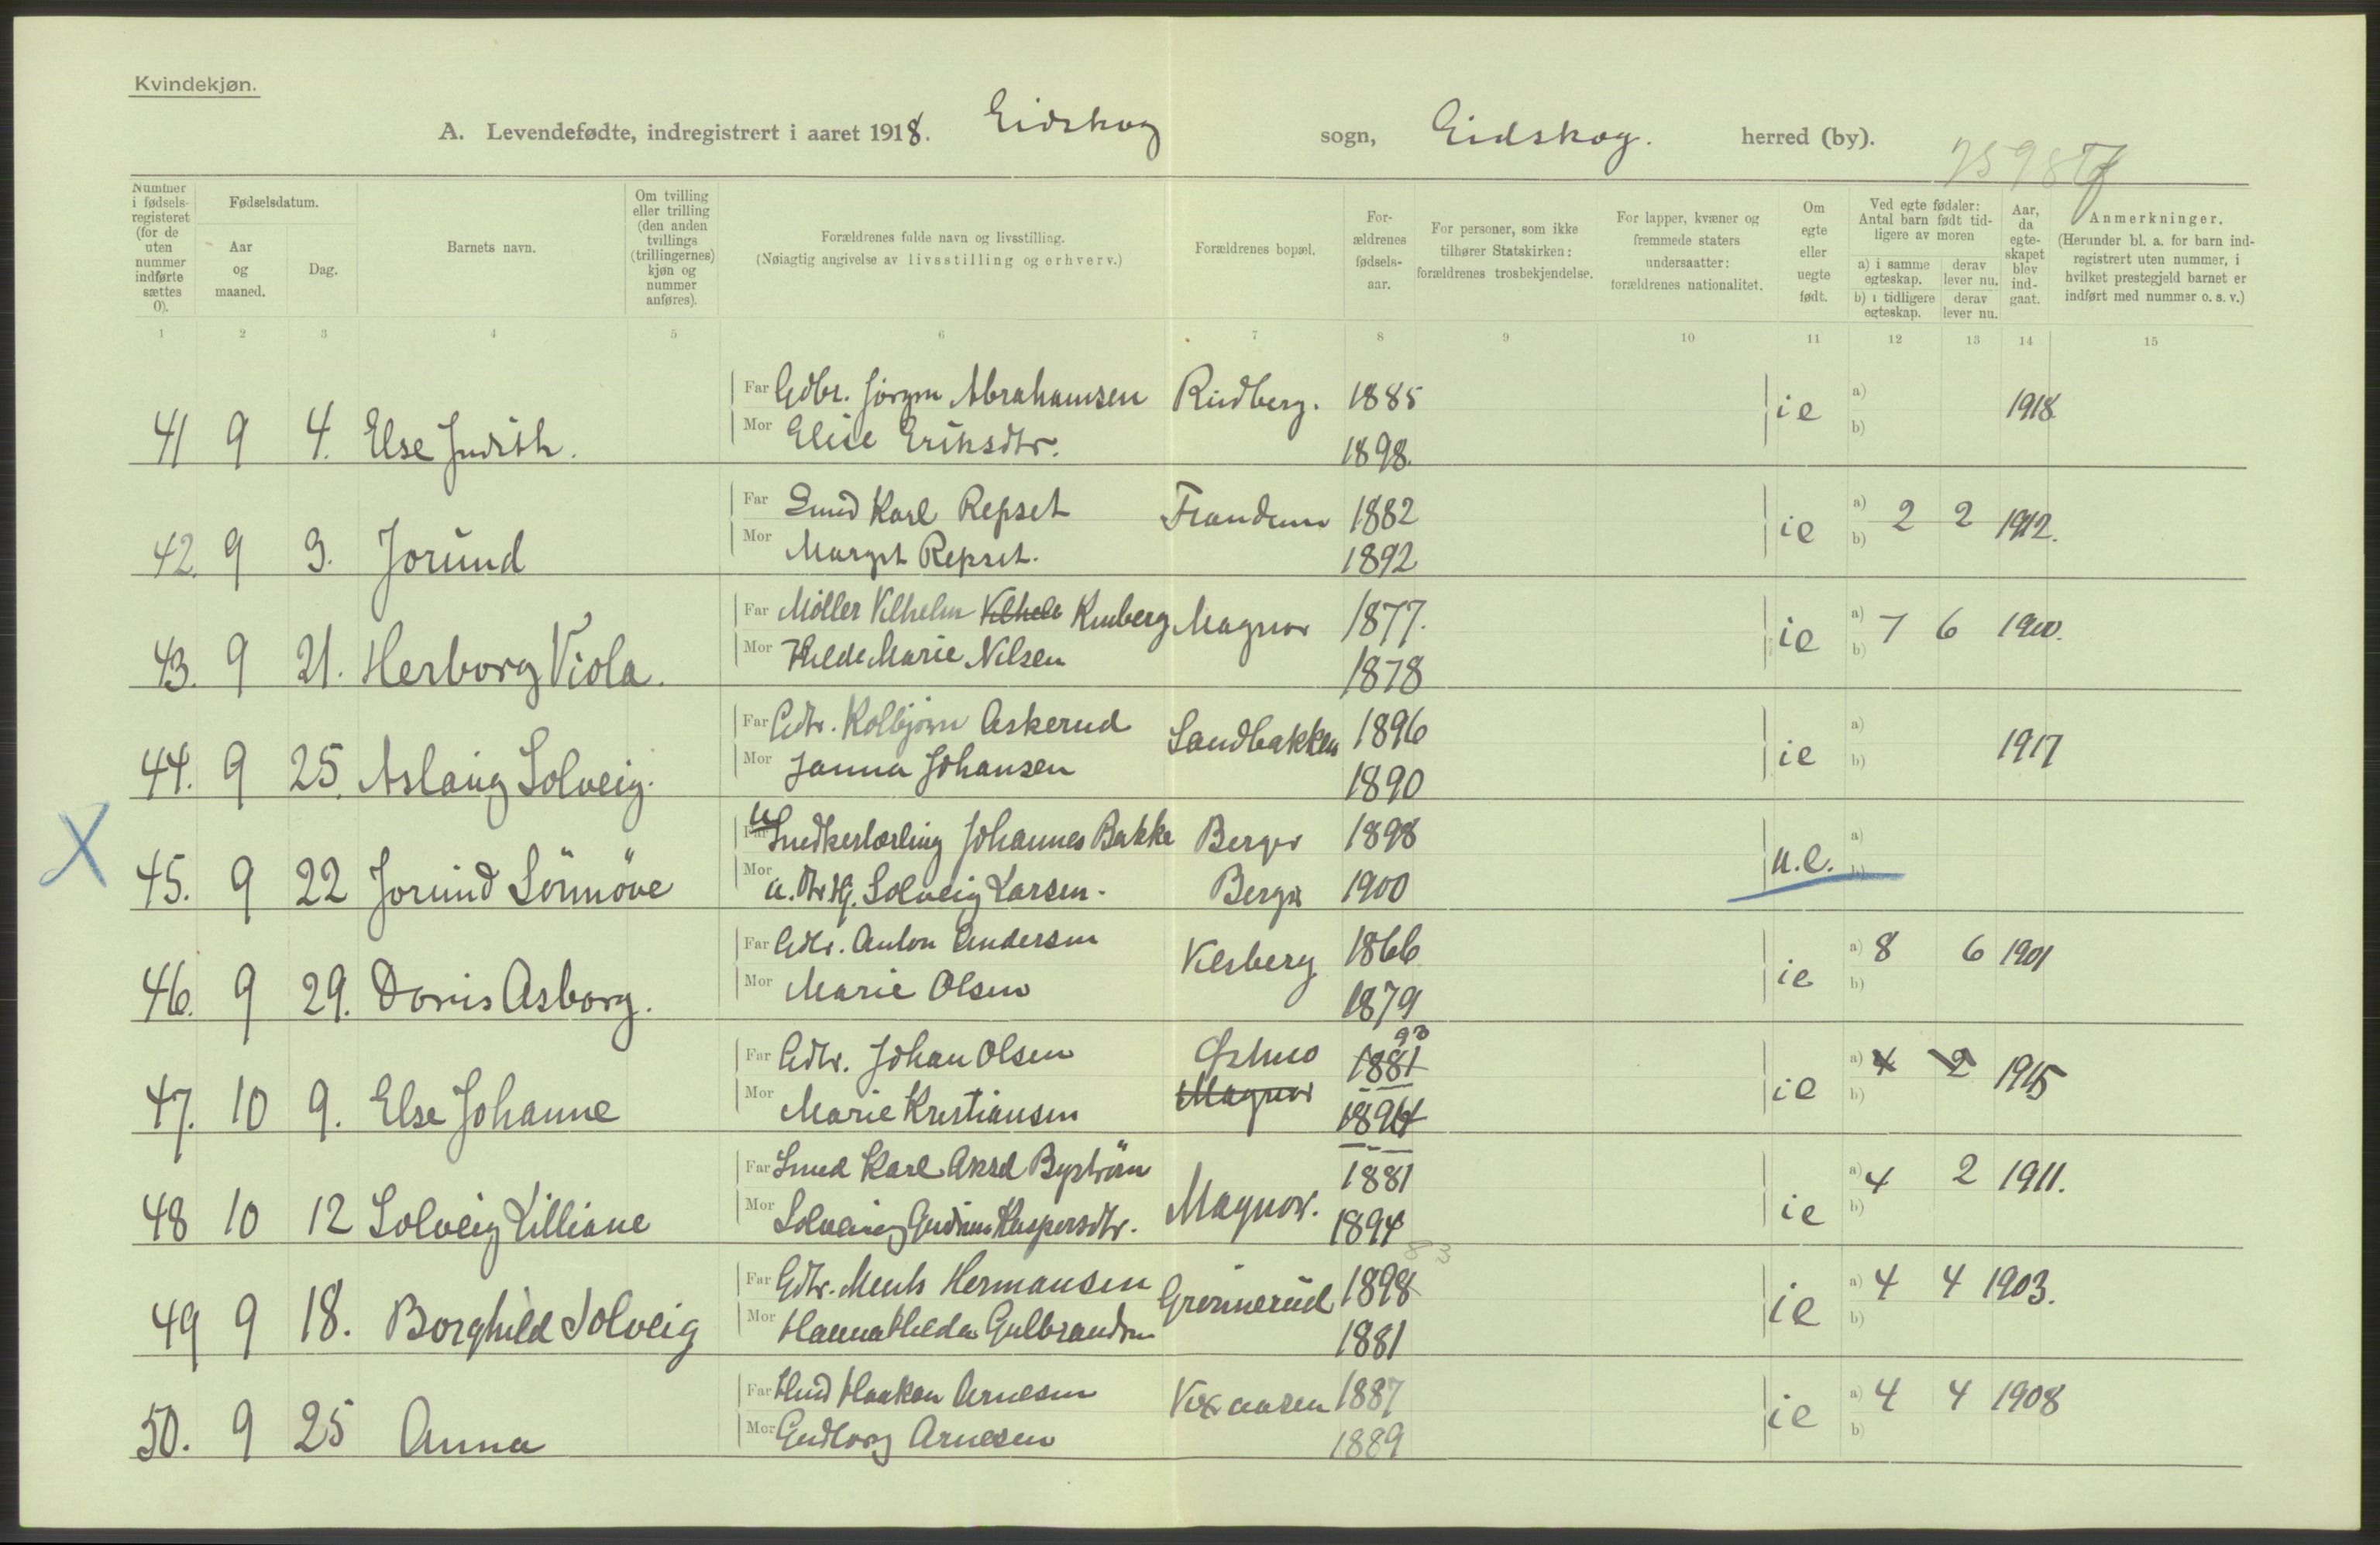 Kvindekjøn.
A. Levendefødte, indregistrert i aaret 1918. Eidskog sogn, Eidskog. herred (by).
Nummer i fødsels-registeret (for de uten nummer indførte sættes 0).
Fødselsdatum.
Aar og maaned.
Dag.
Barnets navn.
Om tvilling eller trilling (den anden tvillings (trillingernes) kjøn og nummer anføres).
Forældrenes fulde navn og livsstilling.
(Nøiagtig angivelse av livsstilling og erhverv.)
Forældrenes bopæl.
For-ældrenes fødsels-aar.
For personer, som ikke tilhører Statskirken: forældrenes trosbekjendelse.
For lapper, kvæner og fremmede staters undersaatter: forældrenes nationalitet.
Om egte eller uegte født.
Ved egte fødsler: Antal barn født tid-ligere av moren
a) i samme egteskap. derav lever nu.
b) i tidligere egteskap. derav lever nu.
Aar, da egte-skapet blev ind-gaat.
Anmerkninger.
(Herunder bl. a. for barn ind-registrert uten nummer, i hvilket prestegjeld barnet er indført med nummer o. s. v.)
1 2 3 4 5 6 7 8 9 10 11 12 13 14 15
Far Gdbr. Jörgen Abrahamsen Rudberg. 1885
41 9 4. Else Judith. Mor Elise Eriksdtr. 1898. ie a) b) 1918
Far Smed Karl Repset 1882
42. 9 3. Jorund Mor Margit Repset. 1892 ie a) 2 2 b) 1912.
Far Möller Vilhelm Kinberg Magnor 1877.
43. 9 21. Herborg Viola. Mor Hilde Marie Nilsen 1878 ie a) 7 6 b) 1900.
Far Kolbjörn Askerud Sandbakken 1896
44. 9 25. Aslaug Solveig. Mor Janna Johansen 1890 ie a) b) 1917
X Far u Snedkerlærling Johannes Bakke Berger 1898
45. 9 22 Jorund Sönnöve Mor Solveig Larsen. Berger 1900 u.e. a) b)
Far Anton Andersen Vesberg 1866
46. 9 29. Doris Asborg. Mor Marie Olsen 1879 ie a) 8 6 b) 1901
Far Johan Olsen Östmo 1881 93
47. 10 9. Else Johanne Mor Marie Kristiansen Magnor ie a) 4 2 b) 1915
Far Smed Karl Aksel Byström Magnor. 1881
48 10 12 Solveig Lilliane Mor Solveig Gudrun Kaspersdtr. 1894 ie a) 4 2 b) 1911.
Far Hermansen Grönnerud 1898 83
49 9 18. Borghild Solveig Mor Hanna Hilda Gulbrandsen 1881 ie a) 4 4 b) 1903.
Far Haakon Arnesen 1887
50. 9 25 Anna Mor Gudborg Arnesen 1889 ie a) 4 4 b) 1908